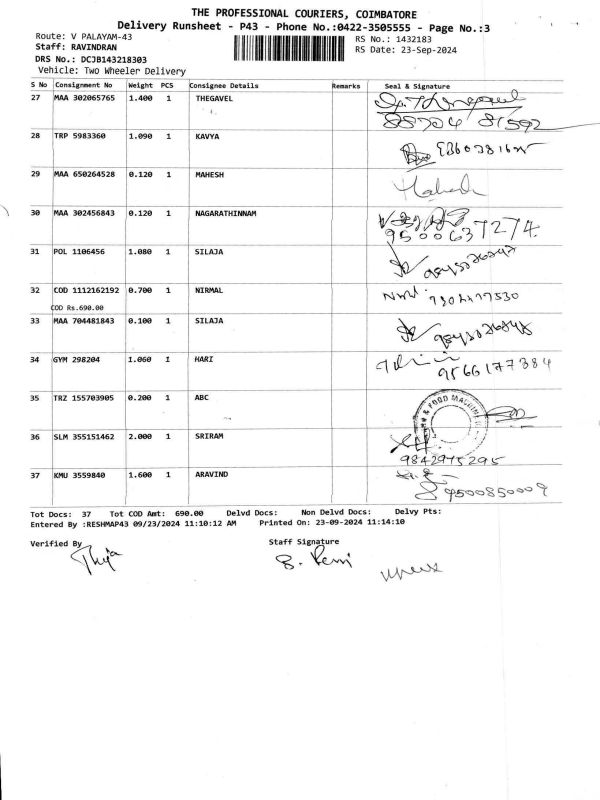 THE PROFESSIONAL COURIERS, COIMBATORE
Delivery Runsheet - P43 - Phone No.:0422-3505555 - Page No.:3
Route: V PALAYAM-43 RS No.: 1432183
Staff: RAVINDRAN RS Date: 23-Sep-2024
DRS No.: DCJB143218303
Vehicle: Two Wheeler Delivery
S No Consignment No Weight PCS Consignee Details Remarks Seal & Signature
27 MAA 302065765 1.400 1 THEGAVEL
88704 81592
28 TRP 5983360 1.090 1 KAVYA
29 MAA 650264528 0.120 1 MAHESH
Mahesh
30 MAA 302456843 0.120 1 NAGARATHINNAM
9500637274
31 POL 1106456 1.080 1 SILAJA
32 COD 1112162192 0.700 1 NIRMAL
COD Rs.690.00
33 MAA 704481843 0.100 1 SILAJA
34 GYM 298204 1.060 1 HARI
9566177384
35 TRZ 155703905 0.200 1 ABC
& FOOD
36 SLM 355151462 2.000 1 SRIRAM
9842975295
37 KMU 3559840 1.600 1 ARAVIND
9500850009
Tot Docs: 37 Tot COD Amt: 690.00 Delvd Docs: Non Delvd Docs: Delvy Pts:
Entered By :RESHMAP43 09/23/2024 11:10:12 AM Printed On: 23-09-2024 11:14:10
Verified By Staff Signature